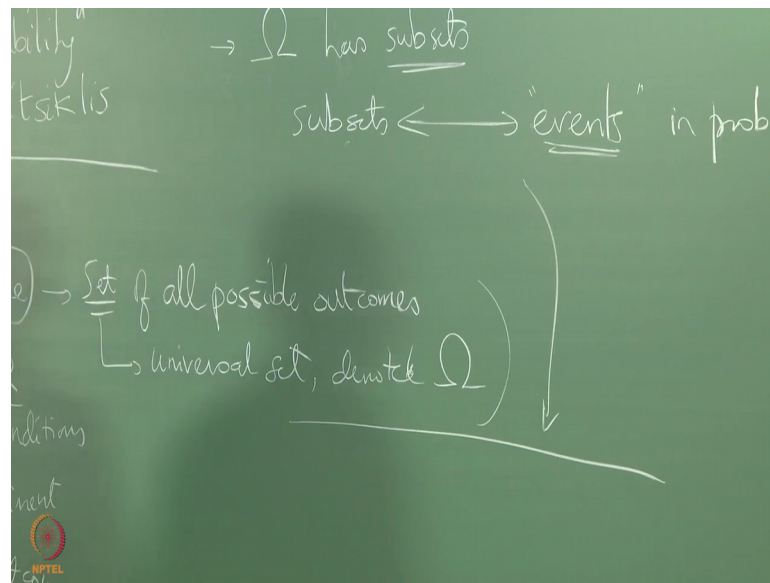 bility"
tsiklis
→ Ω has subsets
subsets ⟷ "events" in prob
e) → Set of all possible outcomes
↳ universal set, denoted Ω
nditions
ment
NPTEL